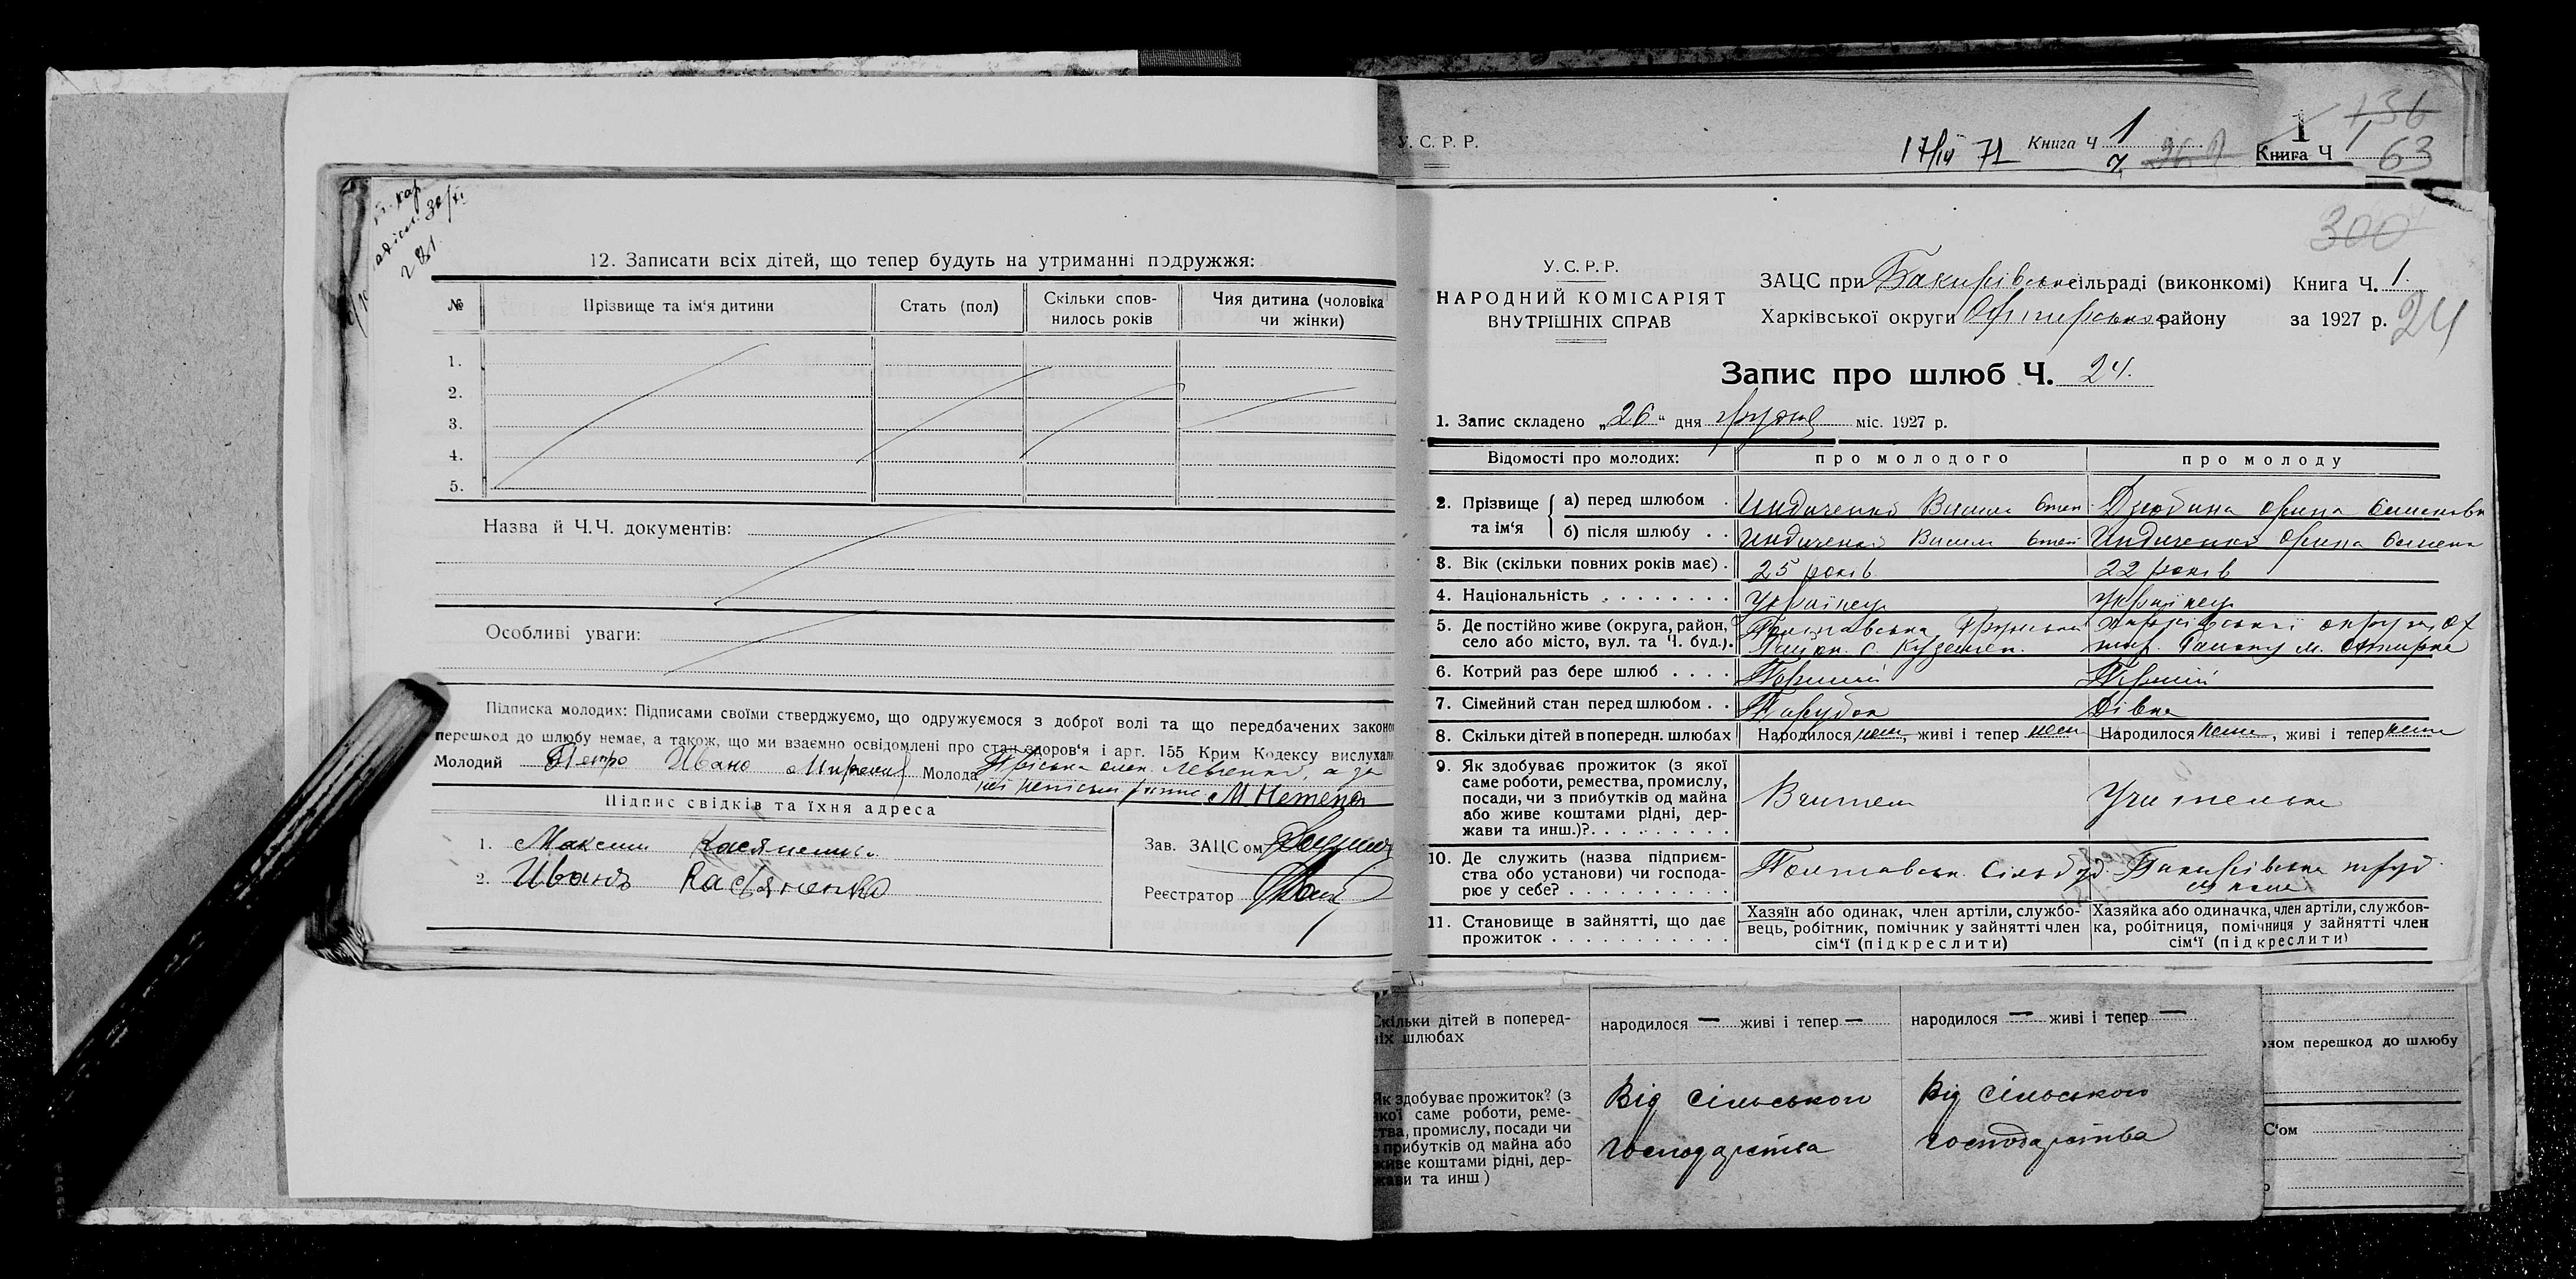 12. Записати всіх дітей, що тепер будуть на утриманні подружжя:
№ Прізвище та ім'я дитини Стать (пол) Скільки спов- нилось років Чия дитина (чоловіка чи жінки)
1.
2.
3.
4.
5.
Назва й Ч.Ч. документів:
Особливі уваги:
Підписка молодих: Підписами своїми стверджуємо, що одружуємося з доброї волі та що передбачених законо
перешкод до шлюбу немає, а також, що ми взаємно освідомлені про стан здоров'я і арт. 155 Крим Кодексу вислухали
Молодий Петро Ивано Молода
Підпис свідків та їхня адреса
1. Максим Касяненко
2. Иванъ Касяненко
Зав. ЗАЦС ом
Реєстратор
У. С. Р. Р.
17/IV 71 Книга Ч 1
Книга Ч 1
136
63
300
У. С. Р. Р.
НАРОДНИЙ КОМІСАРІЯТ
ВНУТРІШНІХ СПРАВ
ЗАЦС при Бакирівській сільраді (виконкомі) Книга Ч. 1.
Харківської округи Охтирського району за 1927 р. 24
Запис про шлюб Ч. 24.
1. Запис складено „26" дня грудня міс. 1927 р.
Відомості про молодих: про молодого про молоду
2. Прізвище та ім'я
а) перед шлюбом Индиченко Степ. Дзюбина Орина Семеновн
б) після шлюбу Индиченко Степ Индиченко Орина Семено
3. Вік (скільки повних років має) 25 років 22 років
4. Національність Українец Українец
5. Де постійно живе (округа, район, Полтавська Харківської округи, Ох
село або місто, вул. та Ч. буд.) с. тир. Району м. Охтирка
6. Котрий раз бере шлюб Перший Перший
7. Сімейний стан перед шлюбом Парубок Дівка
8. Скільки дітей в попередн. шлюбах Народилося нема, живі і тепер нема Народилося нема, живі і тепер нема
9. Як здобуває прожиток (з якої
саме роботи, ремества, промислу,
посади, чи з прибутків од майна
або живе коштами рідні, дер-
жави та инш.)?
Вчитель Учителька
10. Де служить (назва підприєм-
ства або установи) чи господа-
рює у себе?
Полтавськ. Сільбуд. Бакирівська труд
школа
11. Становище в зайнятті, що дає
прожиток
Хазяїн або одинак, член артіли, службо-
вець, робітник, помічник у зайнятті член
сім'ї (підкреслити)
Хазяйка або одиначка, член артіли, службов-
ка, робітниця, помічниця у зайнятті член
сім'ї (підкреслити)
Скільки дітей в поперед-
ніх шлюбах
народилося — живі і тепер — народилося — живі і тепер —
Як здобуває прожиток? (з
якої саме роботи, реме-
ства, промислу, посади чи
з прибутків од майна або
живе коштами рідні, дер-
жави та инш)
Від сільського
господарства
Від сільського
господарства
зом перешкод до шлюбу
С'ом